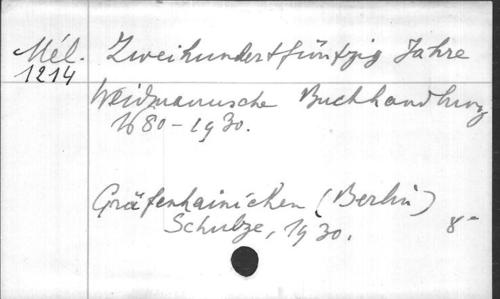 Mél. Zweihundertfünfzig Jahre
1214
Weidmannsche Buchhandlung
1680-1930.
Gräfenhainichen (Berlin)
Schulze, 1930. 8°